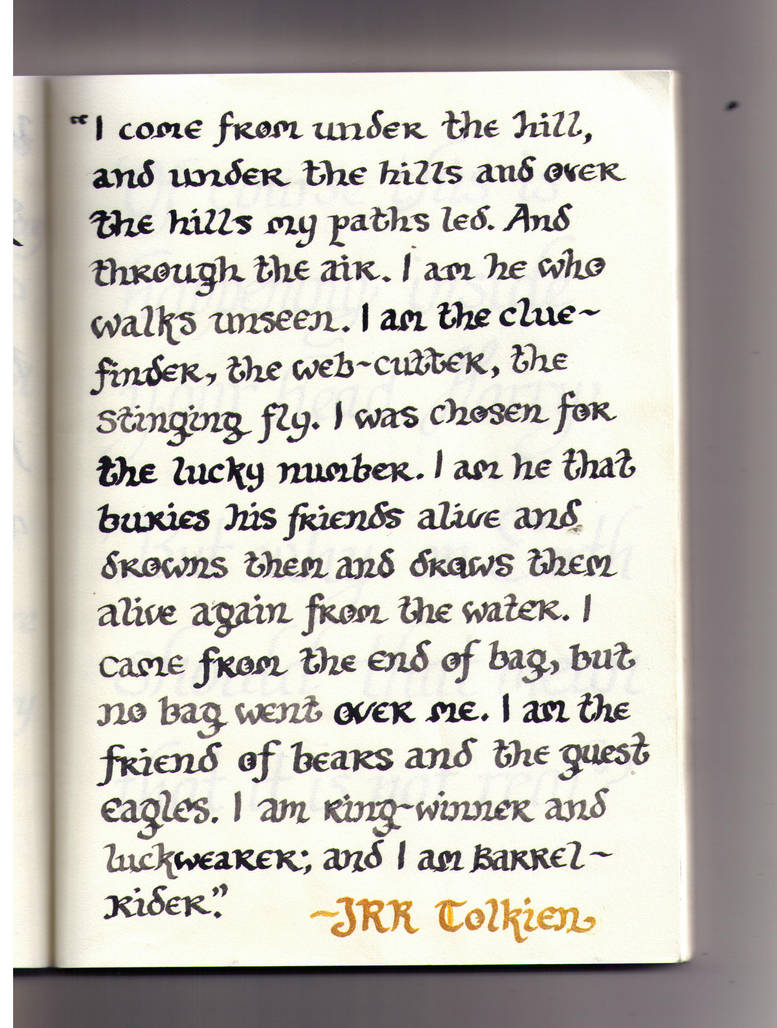 “I come from under the hill,
and under the hills and over
the hills my paths led. And
through the air. I am he who
walks unseen. I am the clue~
finder, the web~cutter, the
stinging fly. I was chosen for
the lucky number. I am he that
buries his friends alive and
drowns them and draws them
alive again from the water. I
came from the end of bag, but
no bag went over me. I am the
friend of bears and the guest
eagles. I am ring~winner and
luckwearer; and I am Barrel~
rider.”
~JRR Tolkien